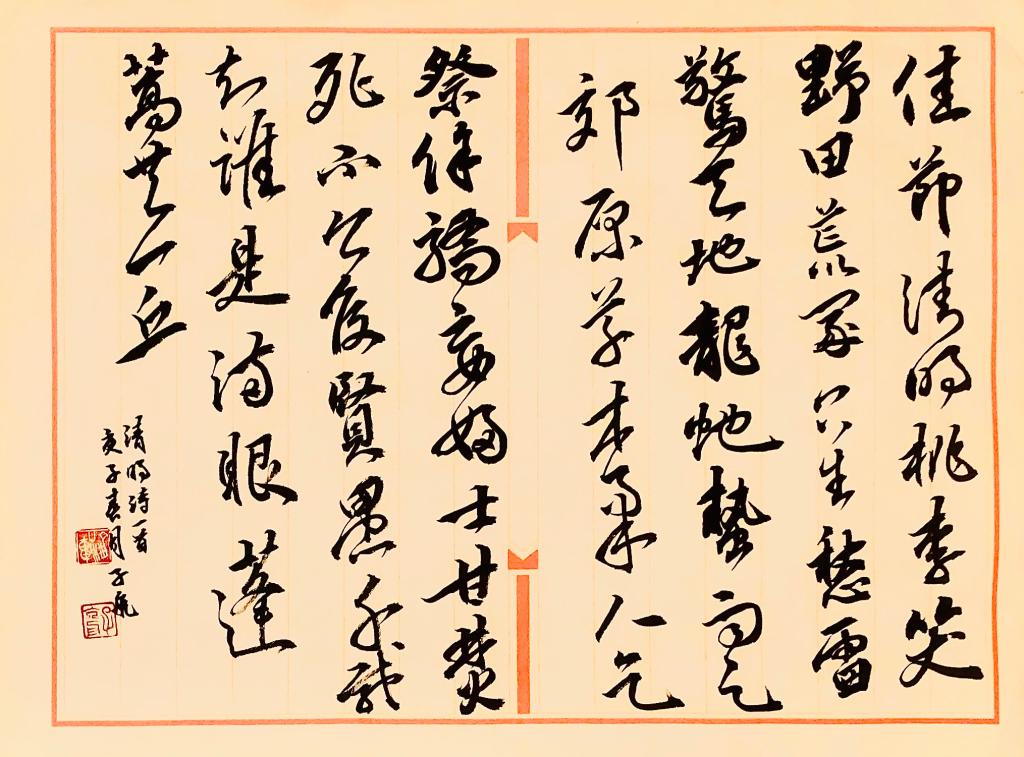 佳節清明桃李笑
野田荒冢只生愁雷
驚天地龍虵蟄雨足
郊原草木柔人乞
祭餘驕妾婦士甘焚
死不公侯賢愚千載
知誰是滿眼蓬
蒿共一丘
清明詩一首
庚子春月子